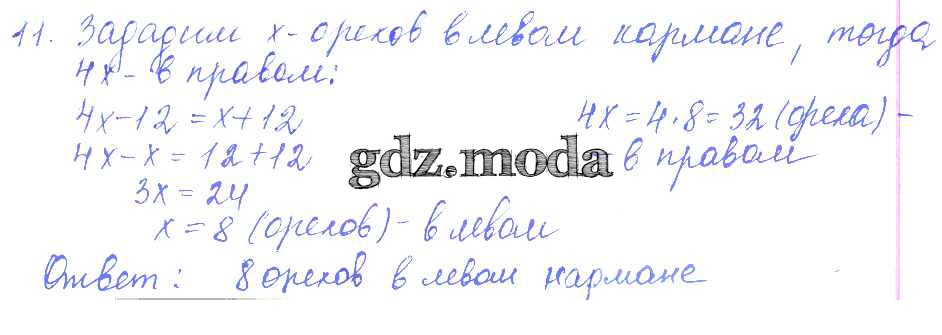 11. Зададим x - орехов в левом кармане, тогда
4x - в правом:
4x - 12 = x + 12
4x - x = 12 + 12
3x = 24
x = 8 (орехов) - в левом
4x = 4 · 8 = 32 (ореха) -
в правом
gdz.moda
Ответ: 8 орехов в левом кармане